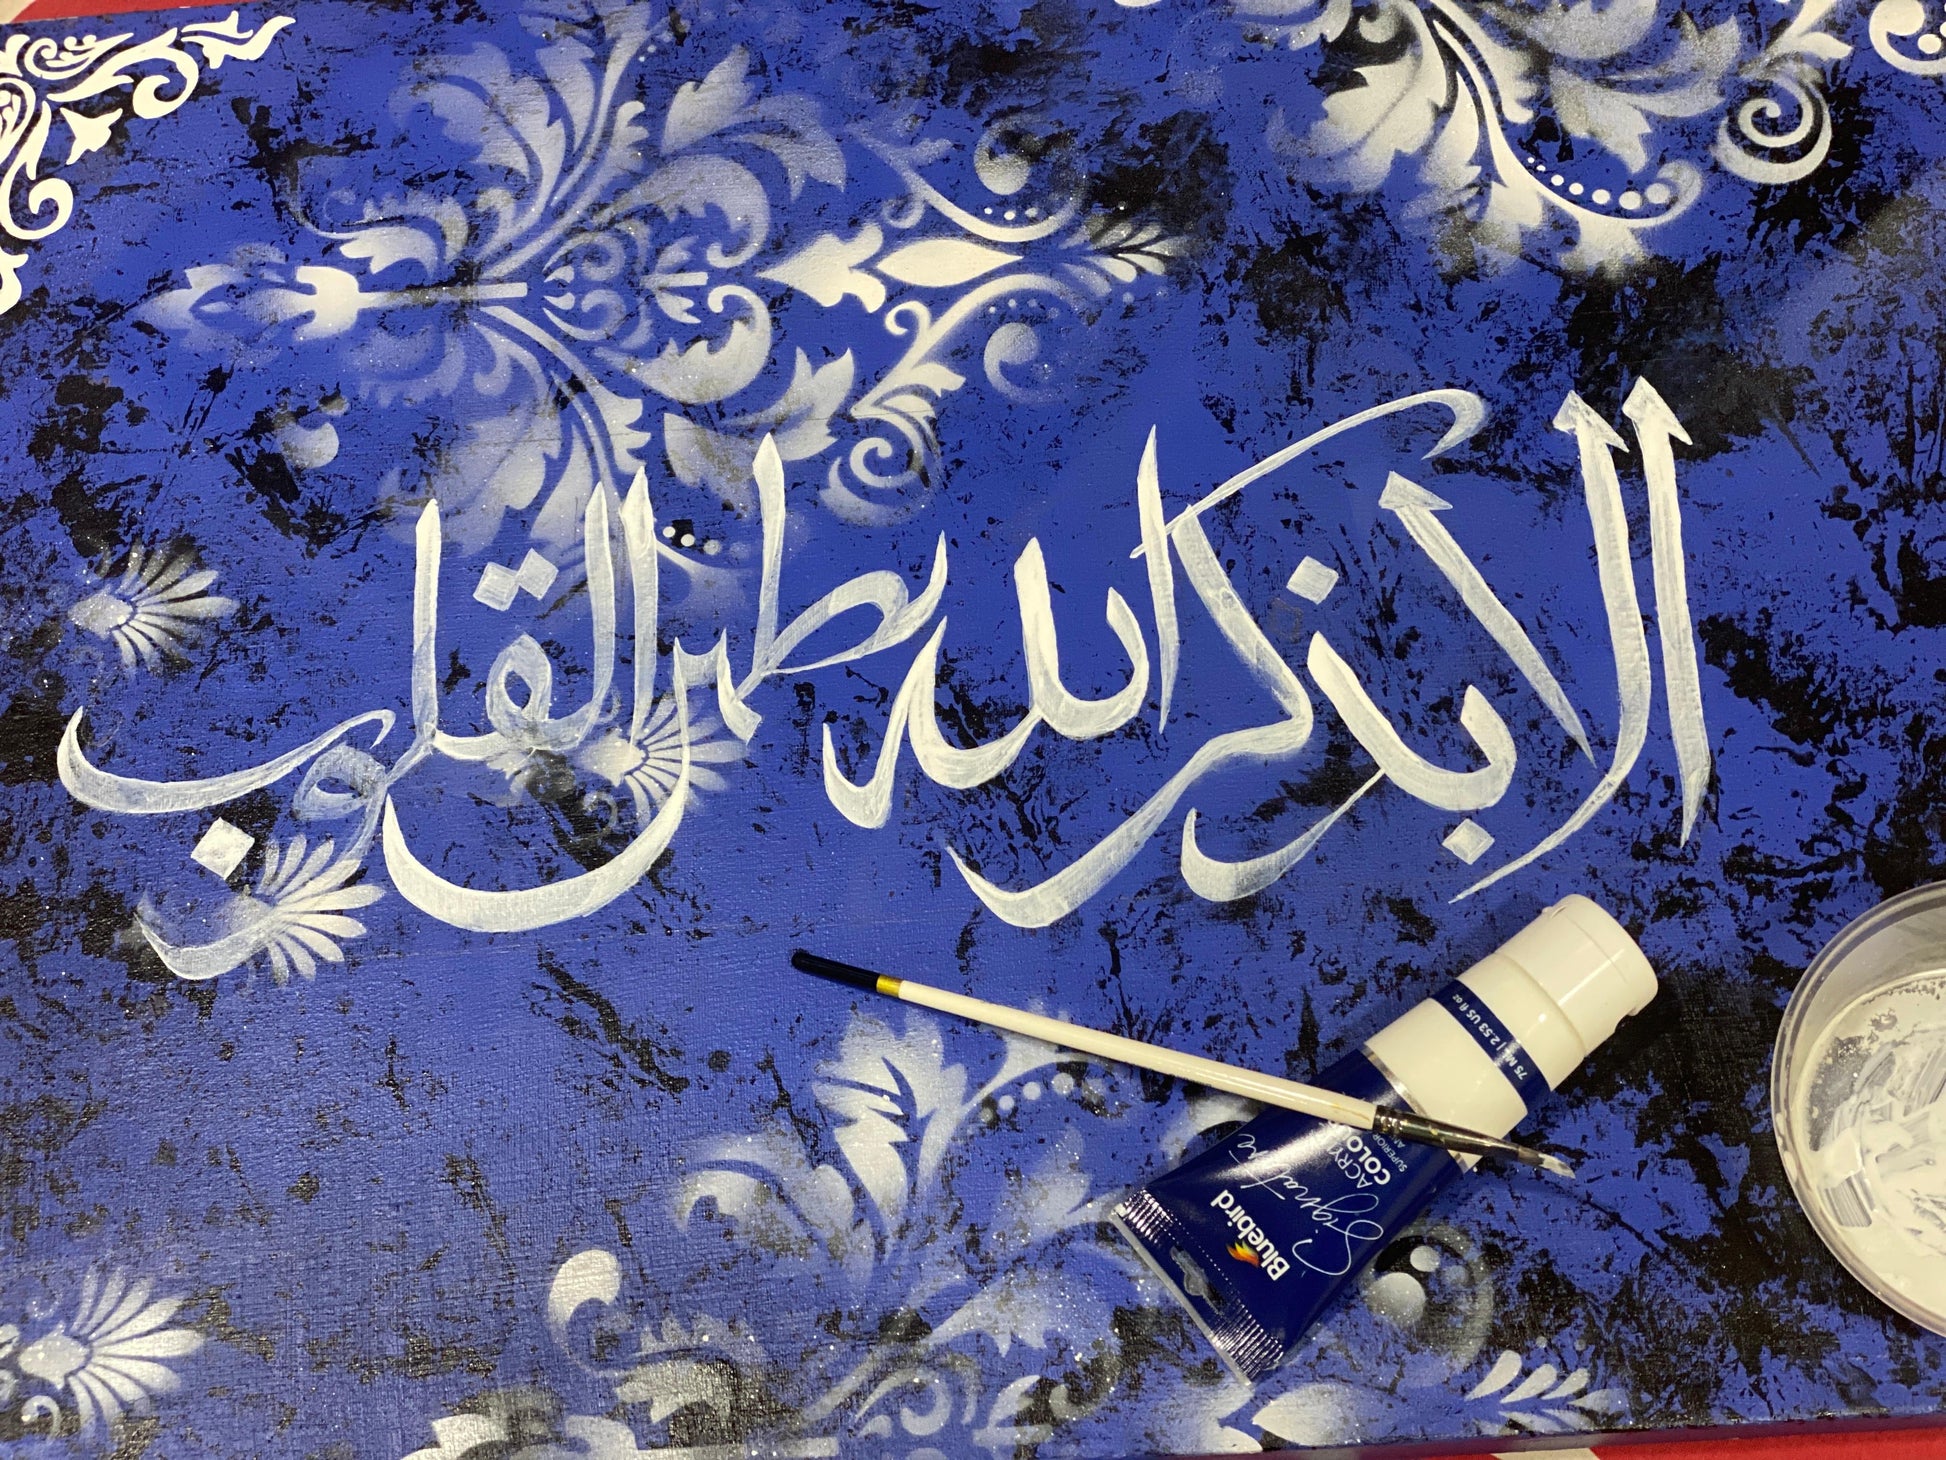 الا بذكر الله تطمئن القلوب
75 ml | 2.53 US fl oz
Bluebird
Signature
ACRY
COLO